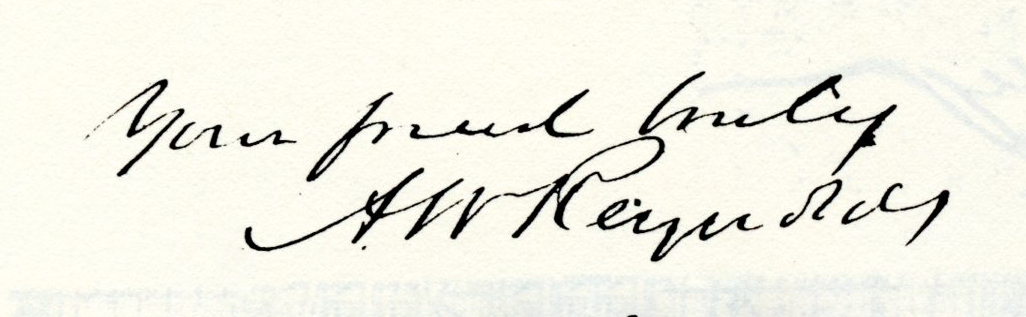 Your friend truly
A W Reynolds